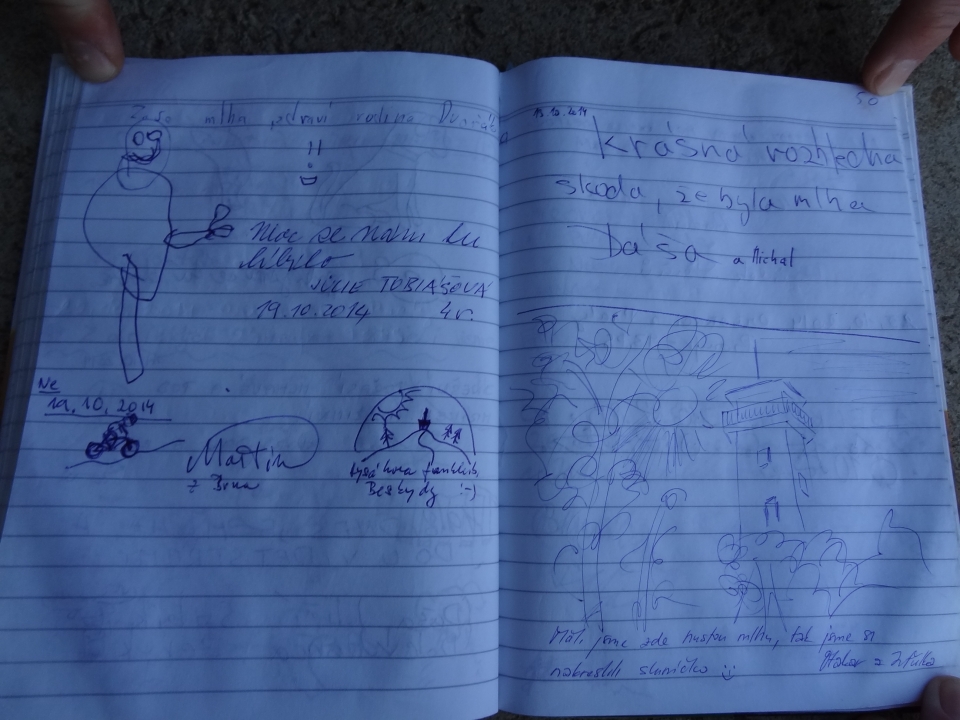 mlha zdraví rodina
Moc se nám tu
líbilo
JULIE TOBIÁŠOVÁ
19.10.2014 4r.
Ne
19.10.2014
Martin
z Brna
Lysá hora fanklub,
Beskydy :-)
50
19.10.2014
Krásná rozhledna
skoda, ze byla mlha
Dáša a Michal
jsme zde hustou mlhu, tak jsme si
nakreslili sluníčko